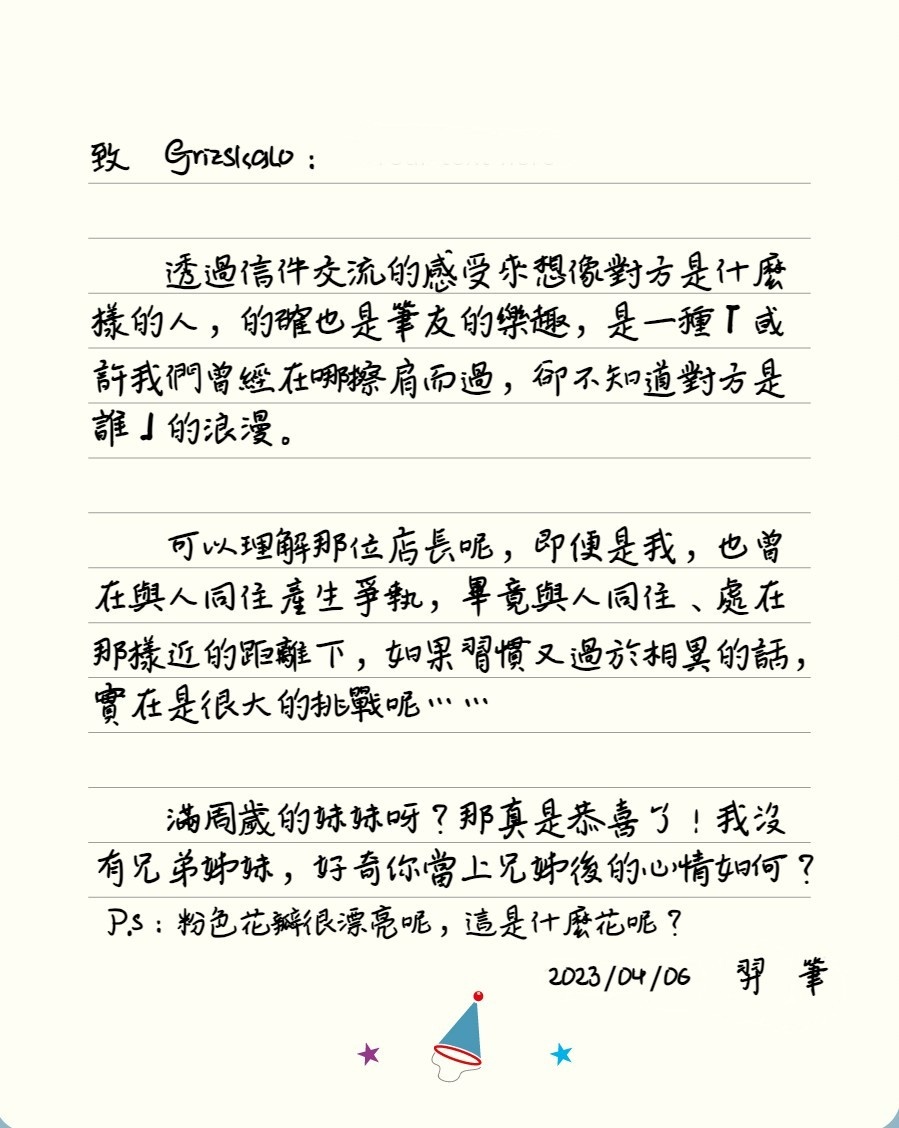 致 Grizskalo：
透過信件交流的感受來想像對方是什麼
樣的人，的確也是筆友的樂趣，是一種「或
許我們曾經在哪擦肩而過，卻不知道對方是
誰」的浪漫。
可以理解那位店長呢，即便是我，也曾
在與人同住產生爭執，畢竟與人同住、處在
那樣近的距離下，如果習慣又過於相異的話，
實在是很大的挑戰呢……
滿周歲的妹妹呀？那真是恭喜了！我沒
有兄弟姊妹，好奇你當上兄姊後的心情如何？
P.S：粉色花瓣很漂亮呢，這是什麼花呢？
2023/04/06 羿 筆